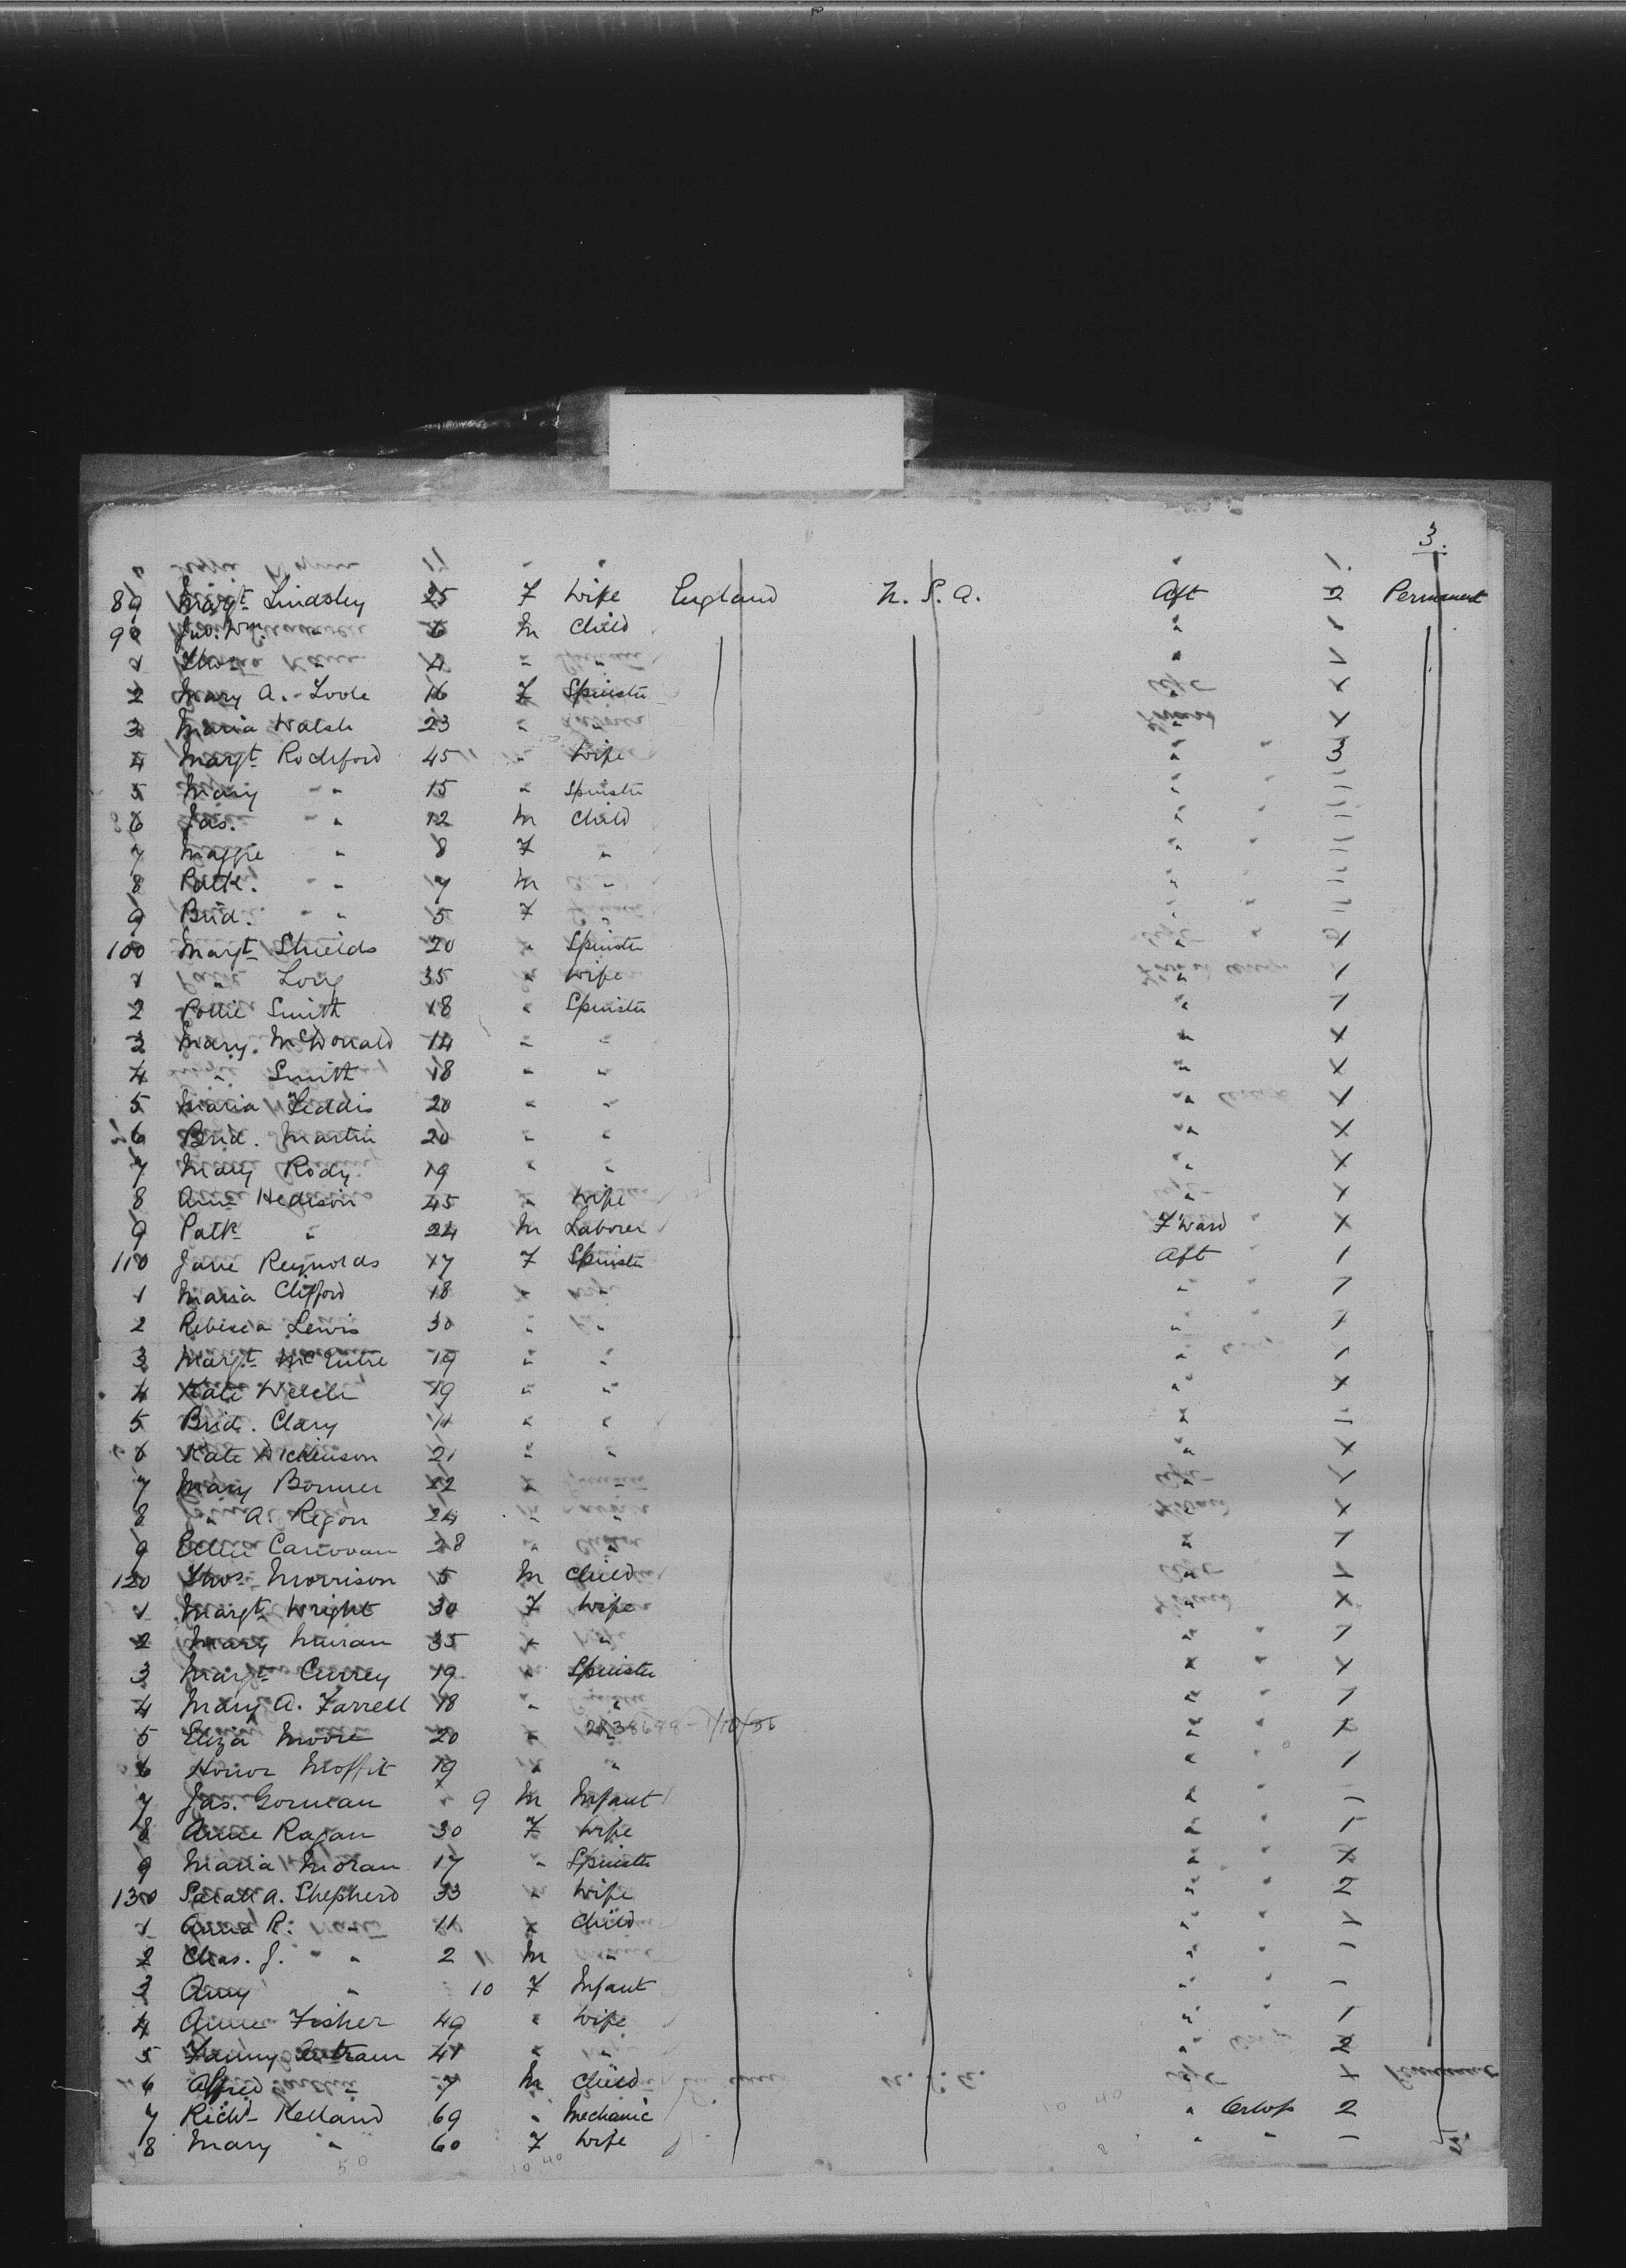 3.
89 Margt Lindsley 25 F Wife England U.S.A. Aft 2 Permanent
90 Jno. Wm. " 6 M Child " 1
1 Thos " 4 " " " 1
2 Mary A. Toole 16 F Spinster " 1
3 Maria Walsh 23 " " " 1
4 Margt Rochford 45 " Wife " 3
5 Mary " 15 " Spinster "
6 Jas. " 12 M Child "
7 Maggie " 8 F " "
8 Patk. " 7 M " "
9 Brid. " 5 F " "
100 Margt Shields 20 " Spinster " 1
1 " Long 35 " Wife " 1
2 Pollie Smith 18 " Spinster " 1
3 Mary McDonald 14 " " " 1
4 " Smith 18 " " " 1
5 Maria Feddis 20 " " " 1
6 Brid. Martin 20 " " " 1
7 Mary Rody 19 " " " 1
8 Ann Hedison 45 " Wife " 1
9 Patk " 24 M Laborer F'ward 1
110 Jane Reynolds 17 F Spinster Aft 1
1 Maria Clifford 18 " " " 1
2 Rebecca Lewis 30 " " " 1
3 Margt McEntire 19 " " " 1
4 Kate Welch 19 " " " 1
5 Brid. Clary 11 " " "
6 Kate Dickinson 21 " " " 1
7 Mary Bonner 22 " " " 1
8 " A. Regon 24 " " " 1
9 Ellie Canovan 28 " " " 1
120 Thos Morrison 5 M Child " 1
1 Margt Wright 30 F Wife " 1
2 Mary 35 " " " 1
3 Margt Currey 19 " Spinster " 1
4 Mary A. Farrell 18 " " " 1
5 Eliza Moore 20 " " " 1
6 Honor Moffit 19 " " " 1
7 Jas. Gorman 9 M Infant " –
8 Annie Ragan 30 F Wife " 1
9 Maria Moran 17 " Spinster " 1
130 Sarah A. Shepherd 33 " Wife " 2
1 Anna R. " 11 " Child " 1
2 Chas. J. " 2 M " " –
3 Amy " 10 F Infant " –
4 Annie Fisher 49 " Wife " 1
5 Fanny 41 " " " 2
6 Alfred " 7 M Child
7 Richd Kelland 69 " Mechanic " Orlop 2
8 Mary " 60 F Wife " " –